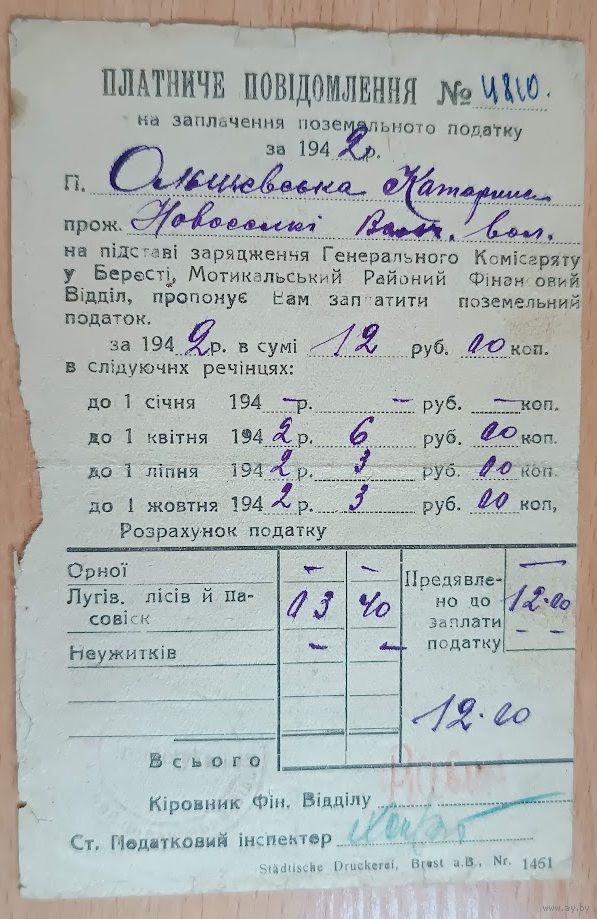 ПЛАТНИЧЕ ПОВІДОМЛЕННЯ № 4810.
на заплачення поземельного податку
за 1942р.
П. Ольшевська Катарина
прож. Новоселкі вол.
на підставі зарядження Генерального Комісаряту
у Бересті, Мотикальський Районий Фінансовий
Відділ, пропонує Вам заплатити поземельний
податок.
за 1942р. в сумі 12 руб. 00 коп.
в слідуючих речінцях:
до 1 січня 194–р. – руб. – коп.
до 1 квітня 1942р. 6 руб. 00 коп.
до 1 ліпня 1942р. 3 руб. 00 коп.
до 1 жовтня 1942р. 3 руб. 00 коп,
Розрахунок податку
Орної – – Предявле- –
Лугів. лісів й па- 03 40 но до 12-00
совіск заплати
Неужитків – – податку – –
12.00
Всього
Кіровник Фін. Відділу
Ст. Податковий інспектор
Städtische Druckerei, Brest a.B., Nr. 1461
www.ay.by